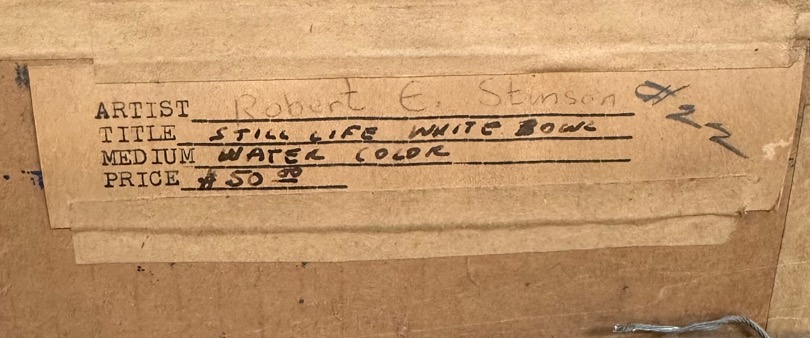 ARTIST Robert E. Stinson #22
TITLE STILL LIFE WHITE BOWL
MEDIUM WATER COLOR
PRICE $50 00